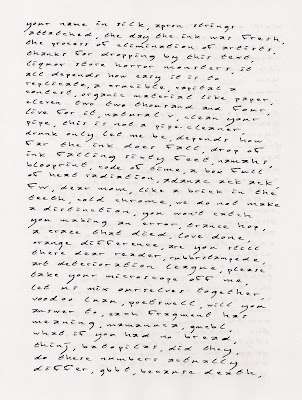 your name in silk, apron strings
attatched, the day the ink was fresh,
the process of elimination of artists,
thanks for dropping by this text,
liquor store horror monsters, it
all depends how easy it is to
replicate, a crucible, capital a
contest, organic material like paper,
eleven two two thousand and four,
live for it, natural v, clean your
pipe, this is not a pipe-cleaner
drunk only let me be, depends how
far the ink does fall, drop of
ink falling sixty feet,
blooprint, code of time, a box full
of heat radiation, adanac ack ack
fw, dear mom, like a brick in the
teeth, cold chrome, we do not make
a distinction, you won't catch
you making an error, trance hop,
a craze that died, love done,
orange difference, are you still
there dear reader, rubbrstampede,
art deterioration league, please
take your microscope off me,
let us mix ourselves together,
voodoo loan, poetswell, will you
answer to, each fragment has
meaning,
what if you had no bread,
thinj, batopilas, did they,
do these numbers actually
differ, gbbt, because death,